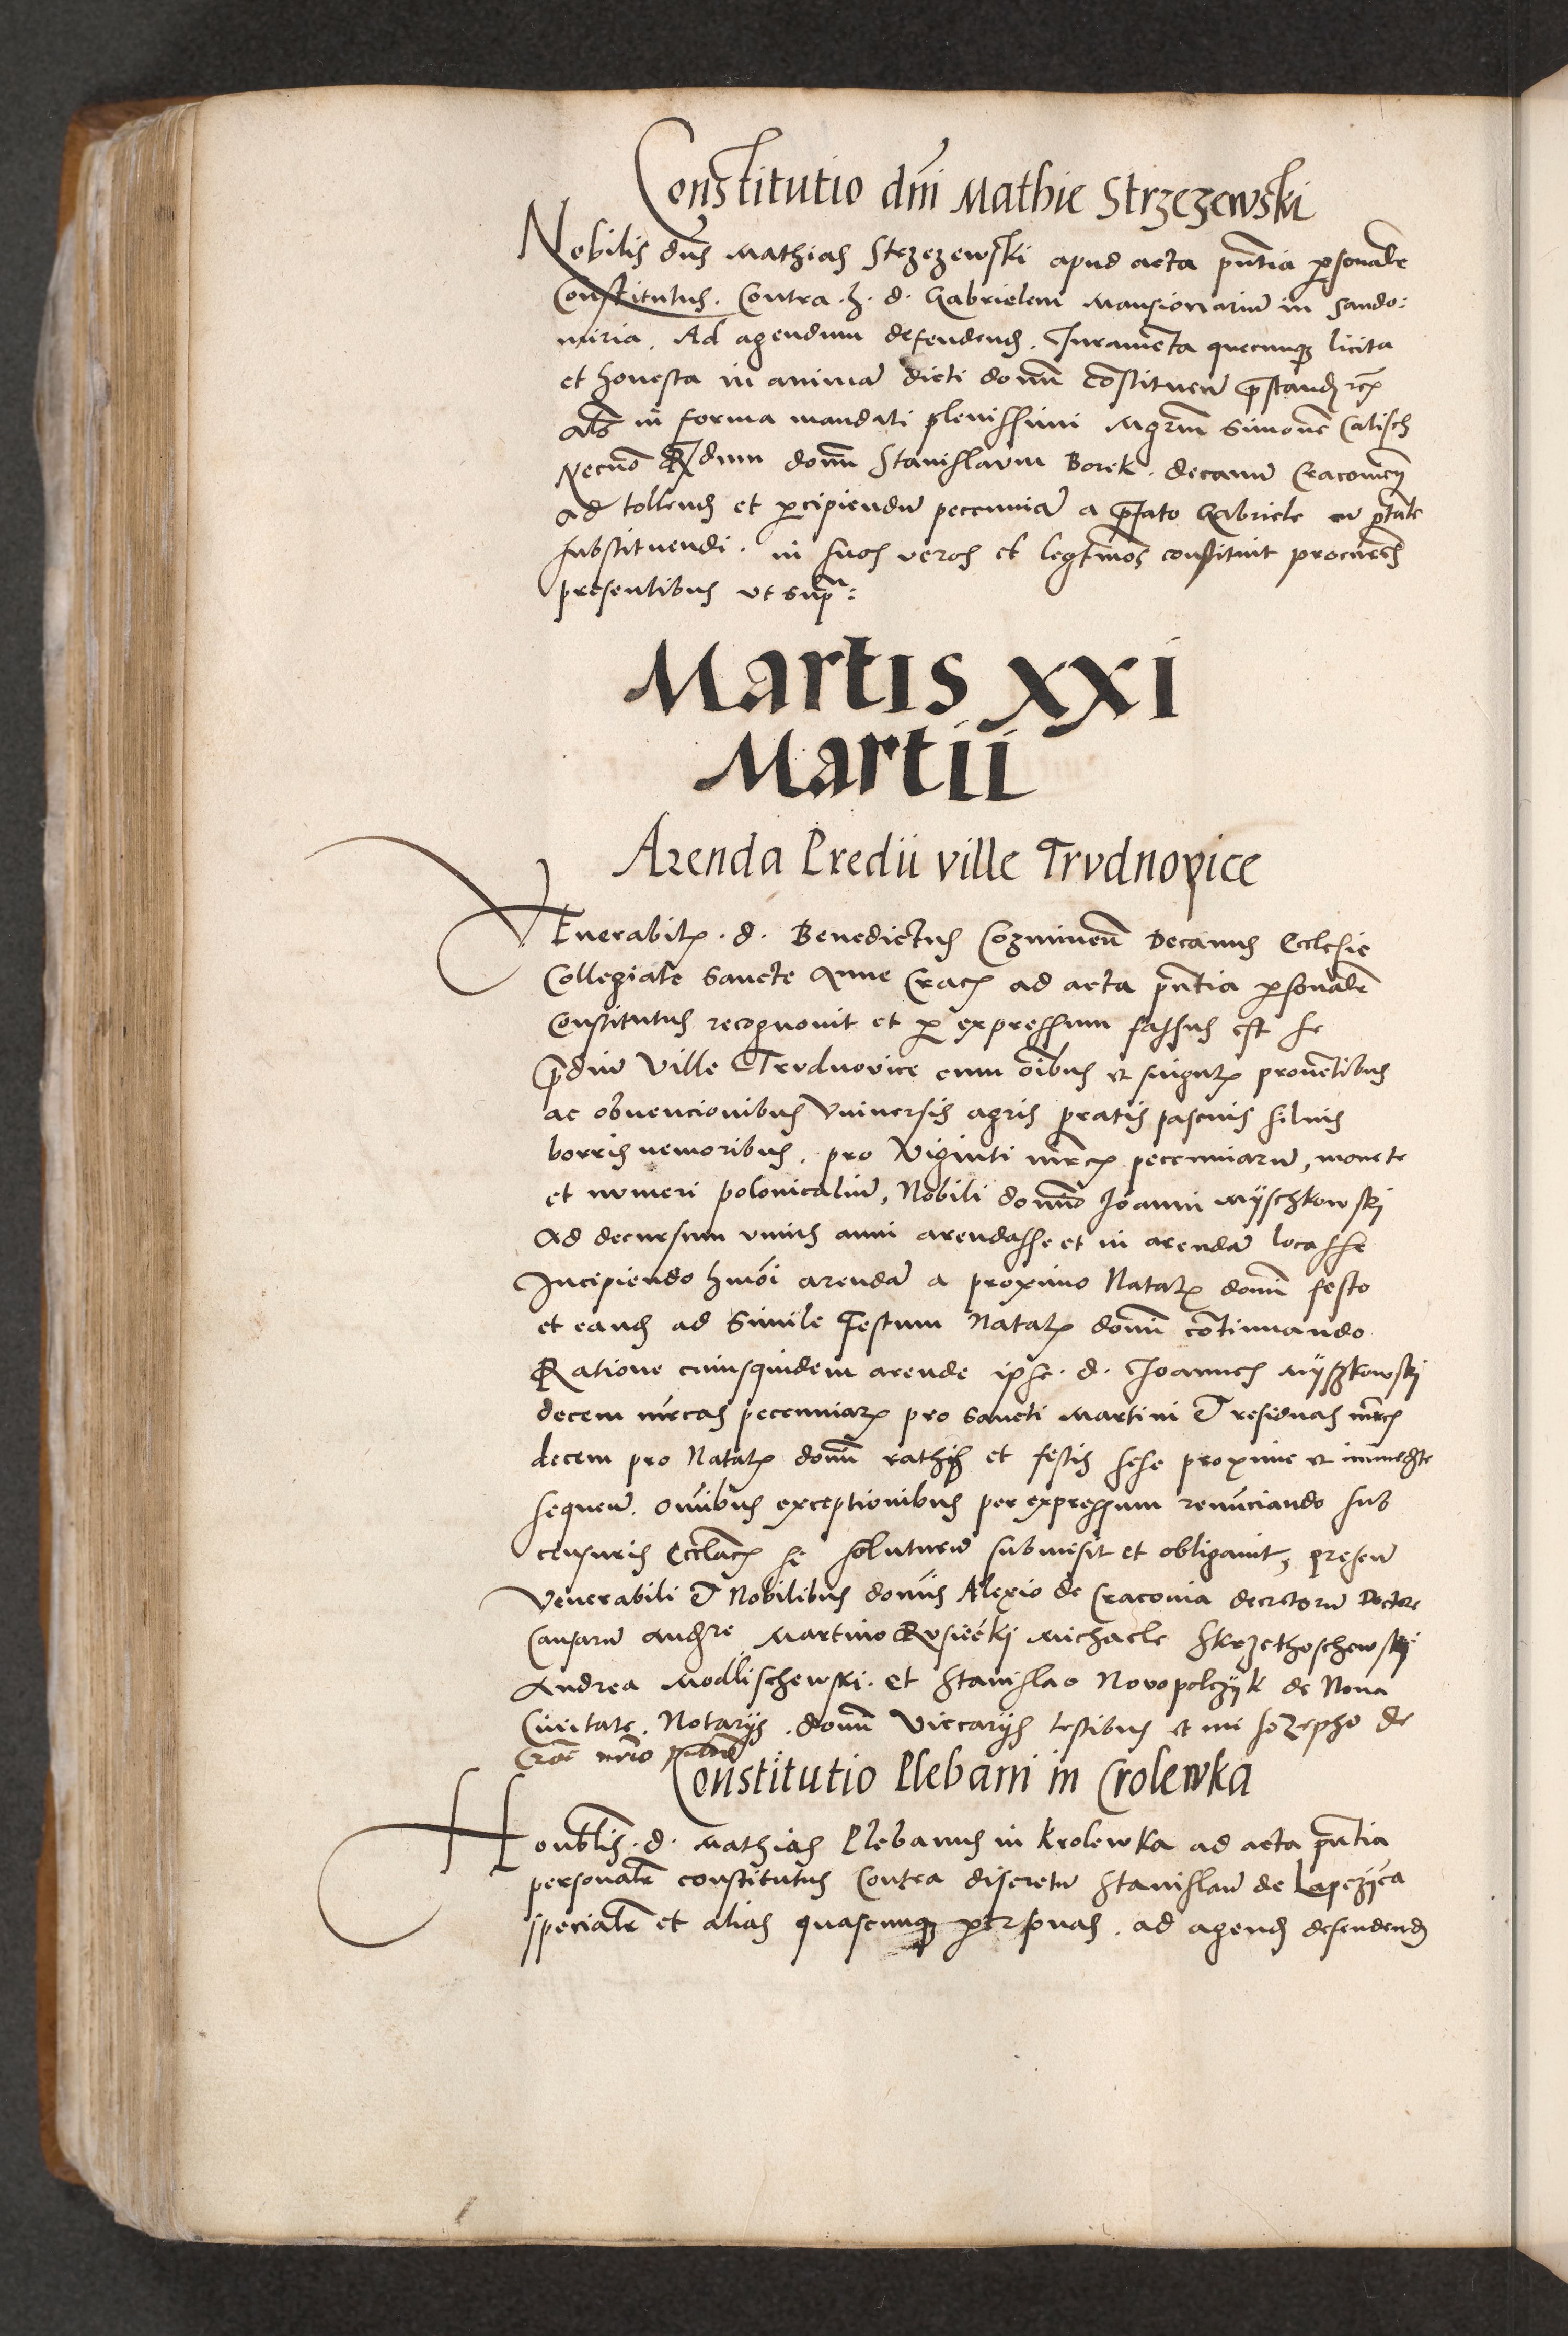 Constitutio dni Mathie Strzezewski
Nobilis dns Mathias Strzezewski apud acta pntia psonalr
Constitutus. Contra . h . d . Gabrielem Mansionariu in Sando:
miria. Ad agendum defendend. Juramenta quecunq licita
et honesta in anima dicti domi constituen prestand
als in forma mandati plenissimi Mgrm Simone Calisch
Necno Rdum domi Stanislaum Borek. decanu Cracovien
ad tollend et pcipiendu pecunia a prefato Gabriele cu ptate
substituendi. in suos veros et legtimos constituit procures
presentibus ut supra:
Martis XXI
Martii
Arenda Predii ville Trvdnovice
Venerabilis . d . Benedictus Cozminen Decanus Ecclesie
Collegiate Sancte Anne Crac ad acta pntia psonalr
Constitutus recognovit et p expressum fassus est se
prediu Ville Trvdnovice cum oibus et singulis proventibus
ac obvencionibus Vniversis agris pratis pascuis silvis
borris nemoribus, pro Viginti mrcis pecuniaru, monete
et numeri polonicaliu, Nobili domino Joanni Myschkowskj
Ad decursum vnius anni arendasse et in arenda locasse
Incipiendo hmoi arenda a proximo Natalis domi festo
et eand ad Simile Festum Natalis domi continuando
Ratione cuiusquidem arende ipse . d . Joannes Myszkowskj
decem mrcas pecuniar pro Sancti Martini et residuas mrcs
decem pro Natalis domi rathis et festis sese proxime et immedte
sequen. omibus exceptionibus per expressum renunciando sub
censuris Ecclacis se soluturu submisit et obligavit, presen
Venerabili et Nobilibus domis Alexio de Cracovia decretoru Doctore
Causaru Audre Martino Rusieckj Michaele Skrzethoschewskj
Andrea Modlischewski. et Stanislao Novopolczyk de Nova
Civitate. Notarijs . domi Viccarijs testibus et me Jozepho de
Crac
Constitutio Plebani in Crolewka
Honblis . d . Mathias Plebanus in Krolewka ad acta pntia
personalr constitutus Contra discretu Stanislau de Lapczyca
specialr et alias quascunq personas . ad agend defendend